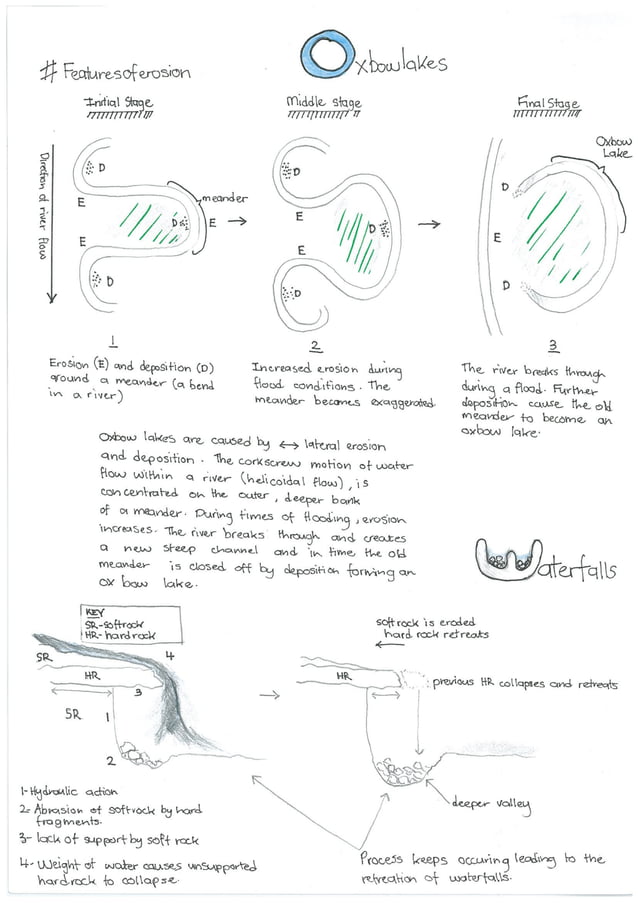 # Features of erosion
Oxbow lakes
Initial Stage
Middle stage
Final Stage
Direction of river flow
D
E
meander
D
E
E
D
D
E
D
E
D
Oxbow
Lake
D
E
D
1
Erosion (E) and deposition (D)
around a meander (a bend
in a river)
2
Increased erosion during
flood conditions. The
meander becomes exaggerated.
3
The river breaks through
during a flood. Further
deposition cause the old
meander to become an
oxbow lake.
Oxbow lakes are caused by ↔ lateral erosion
and deposition. The corkscrew motion of water
flow within a river (helicoidal flow), is
concentrated on the outer, deeper bank
of a meander. During times of flooding, erosion
increases. The river breaks through and creates
a new steep channel and in time the old
meander is closed off by deposition forming an
ox bow lake.
Waterfalls
KEY
SR-softrock
HR-hardrock
SR
4
HR
3
SR
1
2
soft rock is eroded
hard rock retreats
HR
previous HR collapses and retreats
deeper valley
1-Hydraulic action
2-Abrasion of softrock by hard
fragments.
3- lack of support by soft rock
4-Weight of water causes unsupported
hardrock to collapse.
Process keeps occuring leading to the
retreation of waterfalls.